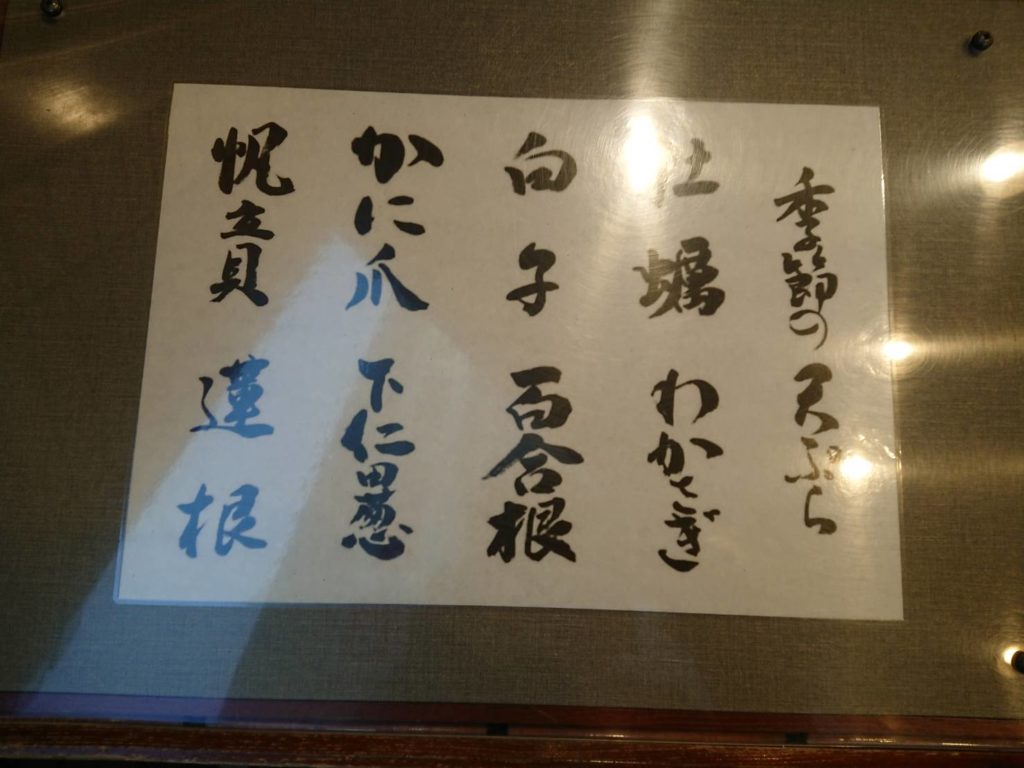 季節の天ぷら
牡蠣 わかさぎ
白子 百合根
かに爪 下仁田葱
帆立貝 蓮根